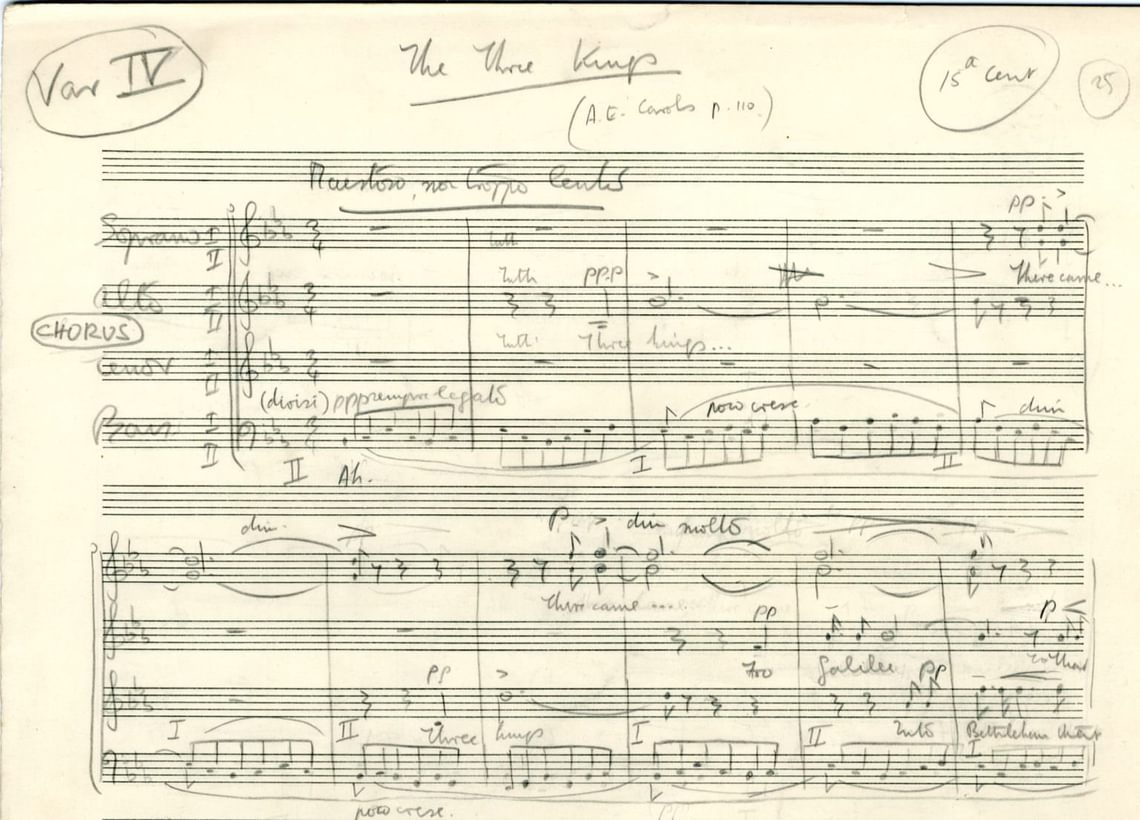 Var IV
The Three Kings
15th Cent
25
(A.E. Carols p. 110.)
Maestoso, non troppo lento
pp
Soprano I
II
tutti
There came...
Alto I
II
tutti ppp
CHORUS
tutti Three kings...
Tenor I
II
(divisi) ppp sempre legato
poco cresc.
dim
Bass I
II
II Ah.
I
II
dim.
p dim molto
There came....
pp
p
Fro Galilee
to that
pp
pp
I II Three kings I II Into Bethlehem that
I
poco cresc.
pp